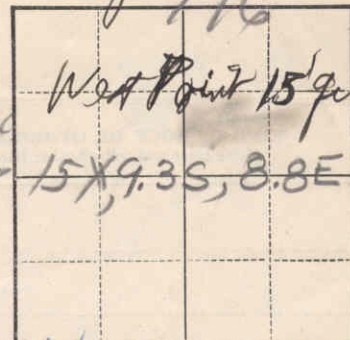 West Point 15' qu
15X, 9.3S, 8.8E